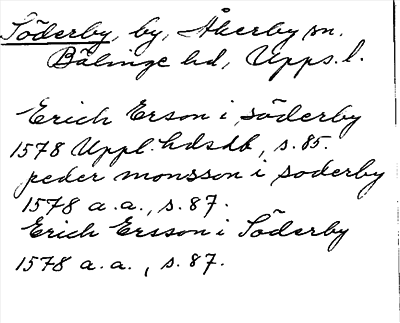 Söderby, by, Åkerby sn.
Bälinge hd, Upps. l.
Erich Erson i söderby
1578 Uppl. hdsdb, s. 85.
peder monsson i soderby
1578 a. a., s. 87.
Erich Ersson i Söderby
1578 a. a., s. 87.